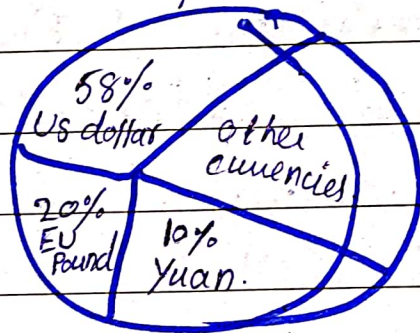 58%
US dollar
other
currencies
20%
EU
Pound
10%
Yuan.